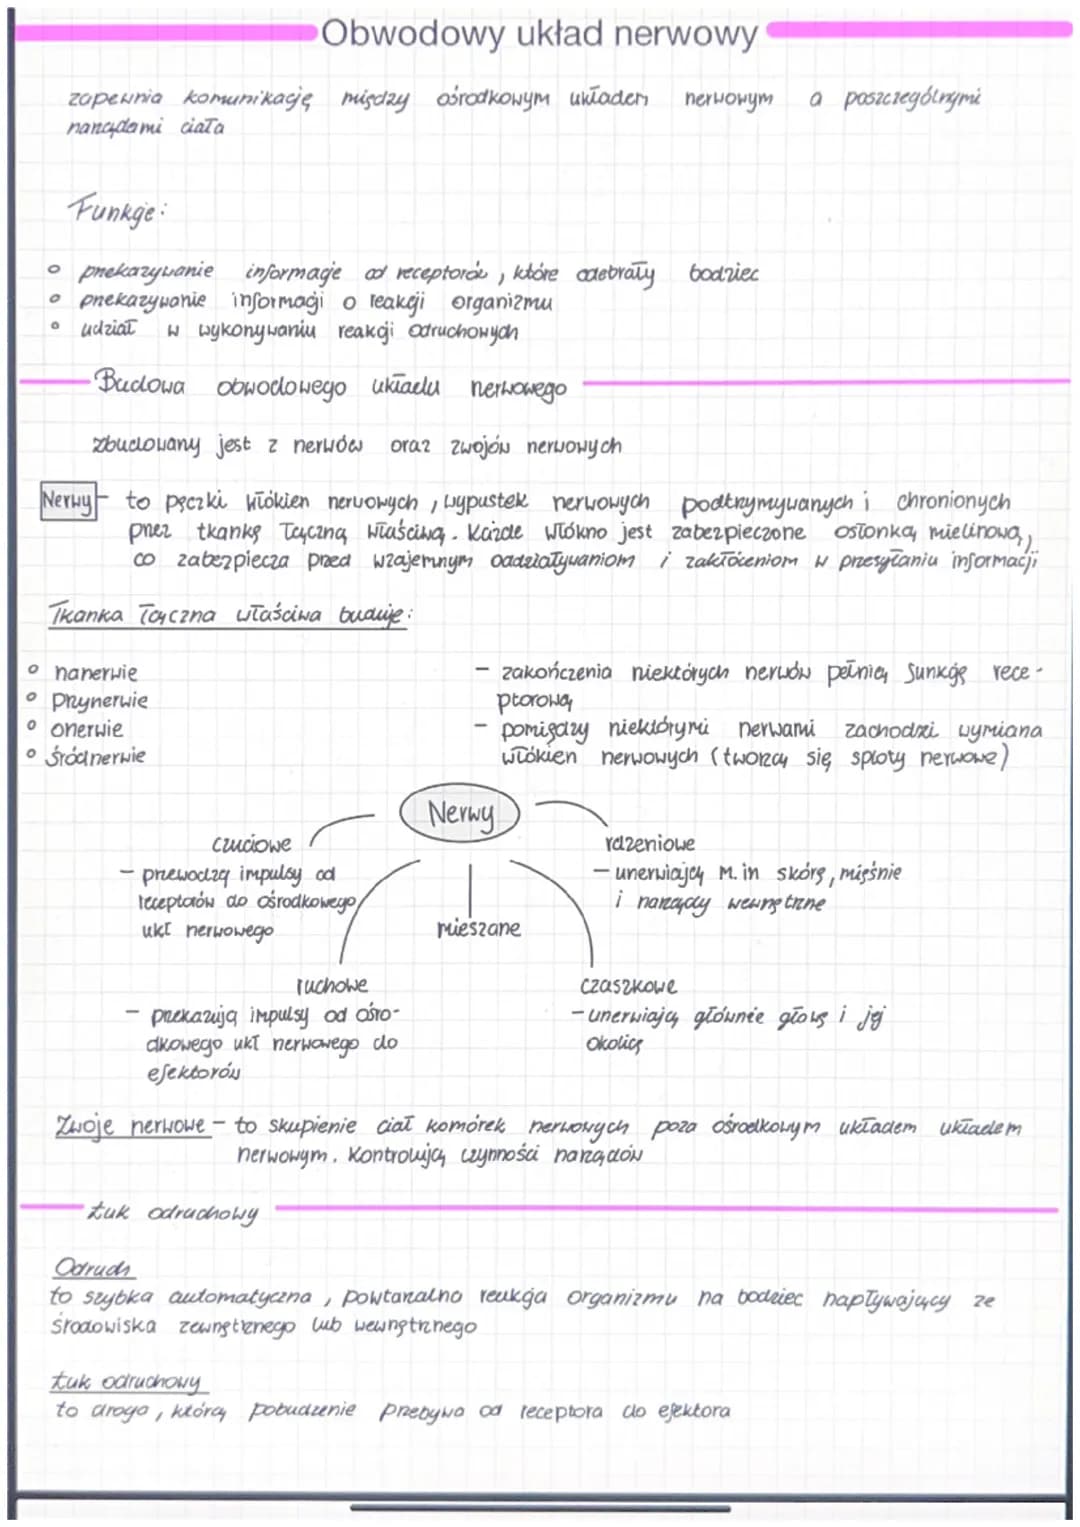 Obwodowy układ nerwowy
zapewnia komunikację między ośrodkowym układem nerwowym a poszczególnymi
narządami ciała
Funkcje:
° przekazywanie informacje od receptorów, które odebrały bodziec
° przekazywanie informacji o reakcji organizmu
° udział w wykonywaniu reakcji odruchowych
Budowa obwodowego układu nerwowego
zbudowany jest z nerwów oraz zwojów nerwowych
Nerwy - to pęczki włókien nerwowych, wypustek nerwowych podtrzymywanych i chronionych
przez tkankę łączną właściwą. Każde włókno jest zabezpieczone osłonką mielinową,
co zabezpiecza przed wzajemnym oddziaływaniom i zakłóceniom w przesyłaniu informacji
Tkanka łączna właściwa buduje:
° nanerwie
° przynerwie
° onerwie
° śródnerwie
- zakończenia niektórych nerwów pełnią funkcję rece-
ptorową
- pomiędzy niektórymi nerwami zachodzi wymiana
włókien nerwowych (tworzą się sploty nerwowe)
Nerwy
czuciowe
- przewodzą impulsy od
receptorów do ośrodkowego
ukł nerwowego
ruchowe
- przekazują impulsy od ośro-
dkowego ukł nerwowego do
efektorów
mieszane
rdzeniowe
- unerwiają m.in skórę, mięśnie
i narządy wewnętrzne
czaszkowe
- unerwiają głównie głowę i jej
okolice
Zwoje nerwowe - to skupienie ciał komórek nerwowych poza ośrodkowym układem układem
nerwowym. Kontrolują czynności narządów
Łuk odruchowy
Odruch
to szybka automatyczna, powtarzalna reakcja organizmu na bodziec napływający ze
środowiska zewnętrznego lub wewnętrznego
Łuk odruchowy
to droga, którą pobudzenie przebywa od receptora do efektora